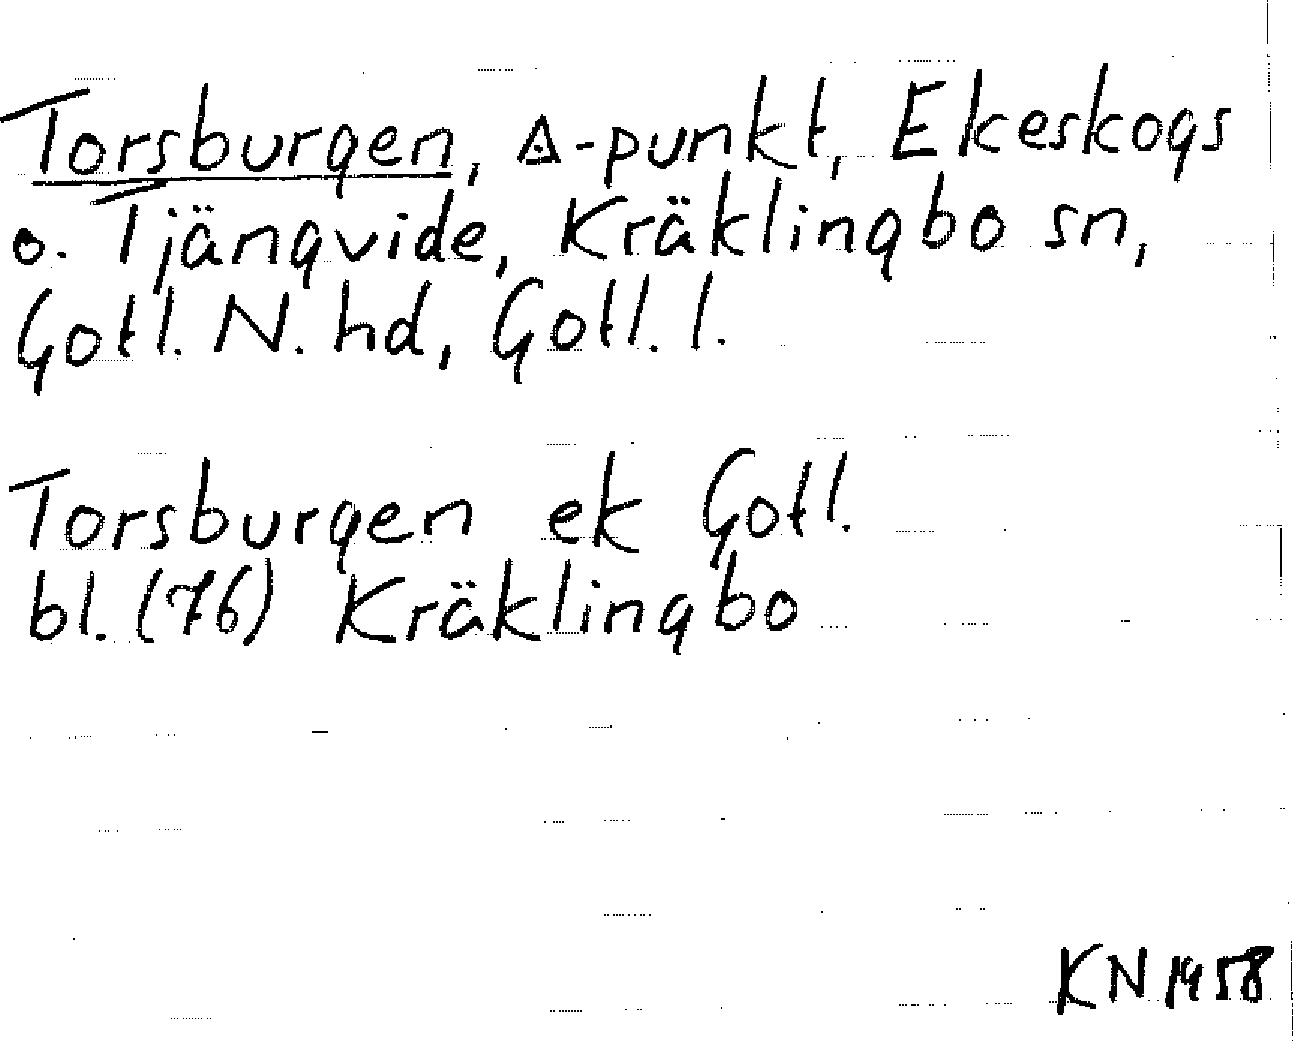 Torsburgen, △-punkt, Ekeskogs
o. Tjängvide, Kräklingbo sn,
Gotl. N. hd, Gotl. l.
Torsburgen ek Gotl.
bl. (76) Kräklingbo
KN 1958